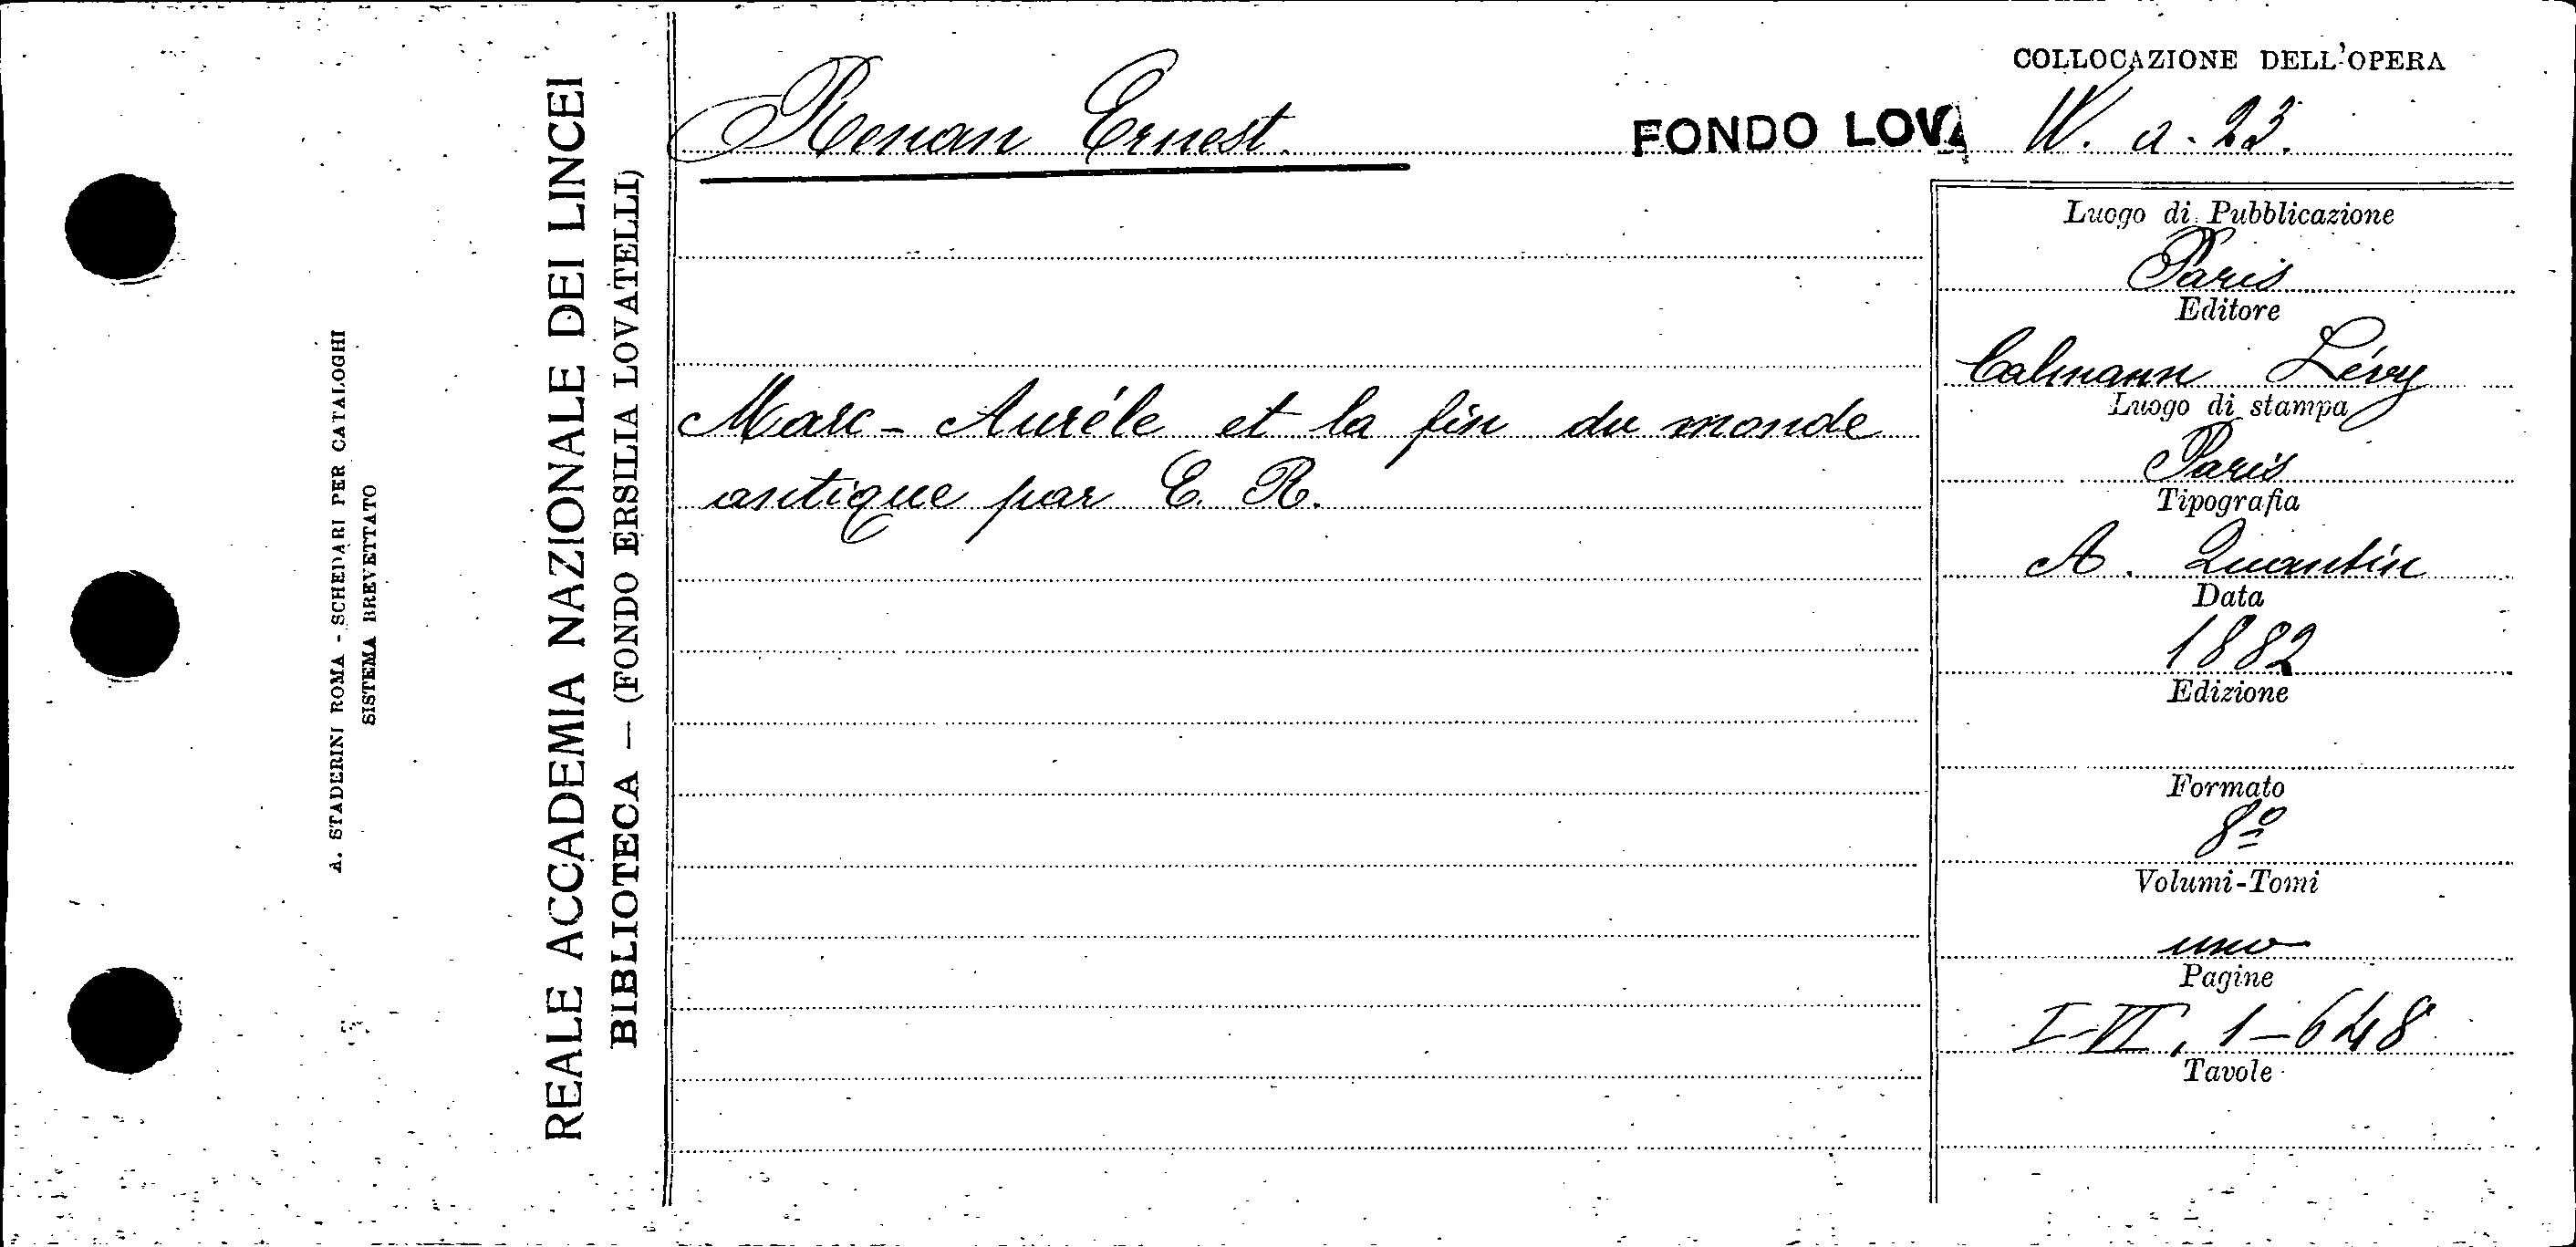 A. STADERINI ROMA - SCHEDARI PER CATALOGHI
SISTEMA BREVETTATO
REALE ACCADEMIA NAZIONALE DEI LINCEI
BIBLIOTECA — (FONDO ERSILIA LOVATELLI)
Renan Ernest.
FONDO LOVA
COLLOCAZIONE DELL'OPERA
W. a. 23.
Marc-Auréle et la fin du monde
antique par E. R.
Luogo di Pubblicazione
Paris
Editore
Calmann Lévy
Luogo di stampa
Paris
Tipografia
A. Quantin
Data
1882
Edizione
Formato
8º
Volumi-Tomi
uno
Pagine
I-VI, 1-648
Tavole